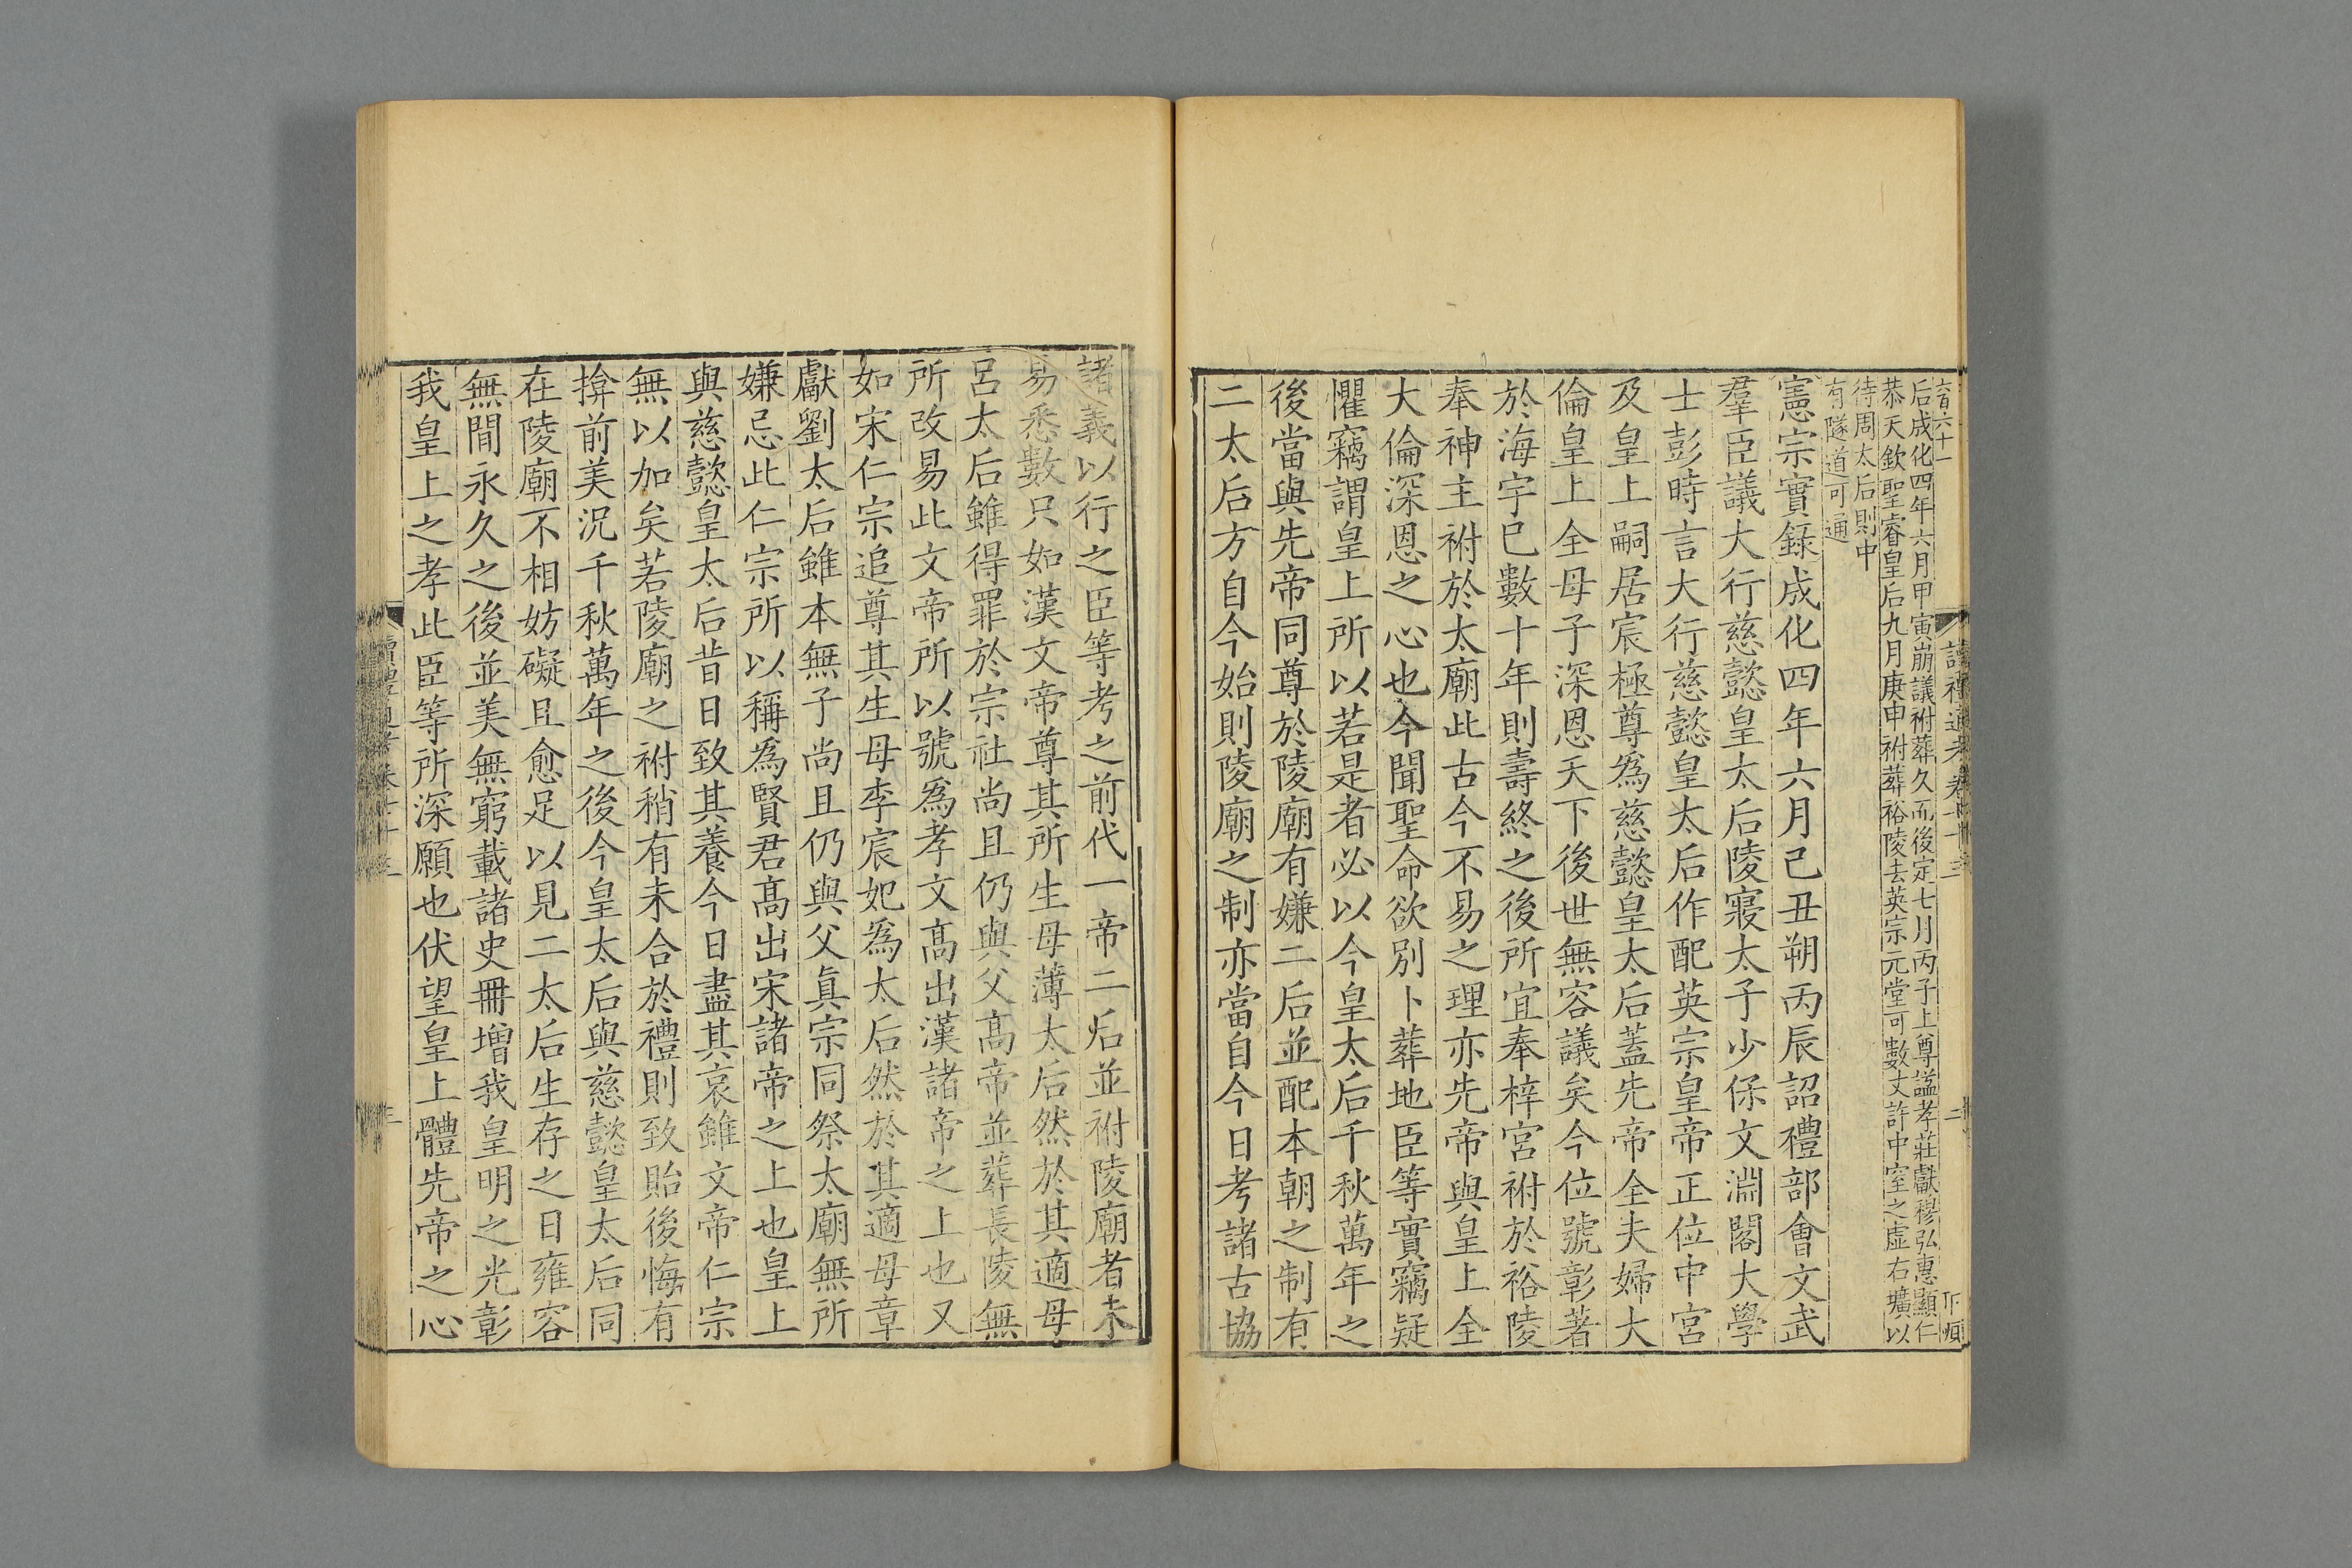 讀禮通考卷九十三
二
后成化四年六月甲寅崩議祔葬久而後定七月丙子上尊諡孝莊獻穆弘惠顯仁
恭天欽聖睿皇后九月庚申祔葬裕陵去英宗元堂可數丈許中窒之虛右壙以
待周太后則中
有隧道可通
憲宗實錄成化四年六月己丑朔丙辰詔禮部會文武
羣臣議大行慈懿皇太后陵寢太子少保文淵閣大學
士彭時言大行慈懿皇太后作配英宗皇帝正位中宮
及皇上嗣居宸極尊為慈懿皇太后蓋先帝全夫婦大
倫皇上全母子深恩天下後世無容議矣今位號彰著
於海宇已數十年則壽終之後所宜奉梓宮祔於裕陵
奉神主祔於太廟此古今不易之理亦先帝與皇上全
大倫深恩之心也今聞聖命欲別卜葬地臣等實竊疑
懼竊謂皇上所以若是者必以今皇太后千秋萬年之
後當與先帝同尊於陵廟有嫌二后並配本朝之制有
二太后方自今始則陵廟之制亦當自今日考諸古協
諸義以行之臣等考之前代一帝二后並祔陵廟者未
易悉數只如漢文帝尊其所生母薄太后然於其適母
呂太后雖得罪於宗社尚且仍與父高帝並葬長陵無
所改易此文帝所以號為孝文高出漢諸帝之上也又
如宋仁宗追尊其生母李宸妃為太后然於其適母章
獻劉太后雖本無子尚且仍與父真宗同祭太廟無所
嫌忌此仁宗所以稱為賢君高出宋諸帝之上也皇上
與慈懿皇太后昔日致其養今日盡其哀雖文帝仁宗
無以加矣若陵廟之祔稍有未合於禮則致貽後悔有
揜前美況千秋萬年之後今皇太后與慈懿皇太后同
在陵廟不相妨礙且愈足以見二太后生存之日雍容
無間永久之後並美無窮載諸史冊增我皇明之光彰
我皇上之孝此臣等所深願也伏望皇上體先帝之心